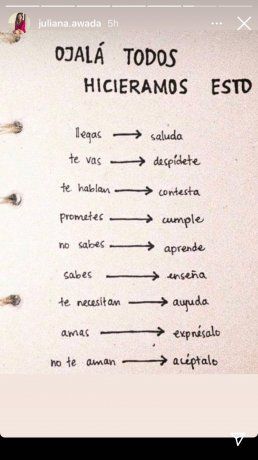 juliana.awada 5h
OJALÁ TODOS
HICIERAMOS ESTO
llegas → saluda
te vas → despídete
te hablan → contesta
prometes → cumple
no sabes → aprende
sabes → enseña
te necesitan → ayuda
amas → exprésalo
no te aman → acéptalo